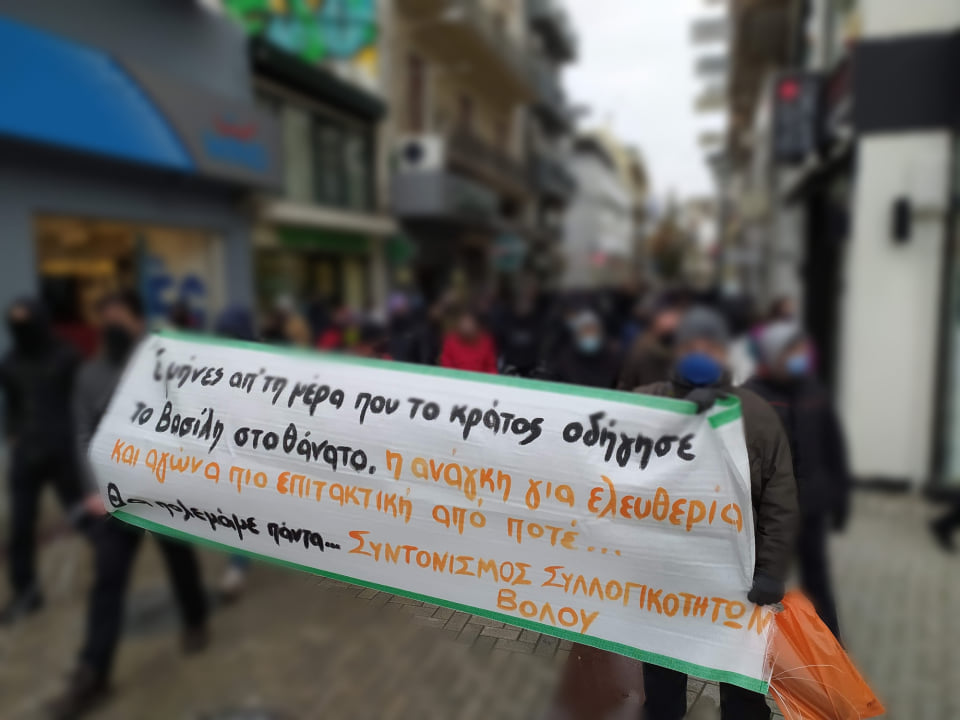 μήνες απ' τη μέρα που το κράτος οδήγησε
το Βασίλη στο θάνατο, η ανάγκη για ελευθερία
και αγώνα πιο επιτακτική από ποτέ...
Θα πολεμάμε πάντα... ΣΥΝΤΟΝΙΣΜΟΣ ΣΥΛΛΟΓΙΚΟΤΗΤΩΝ
ΒΟΛΟΥ